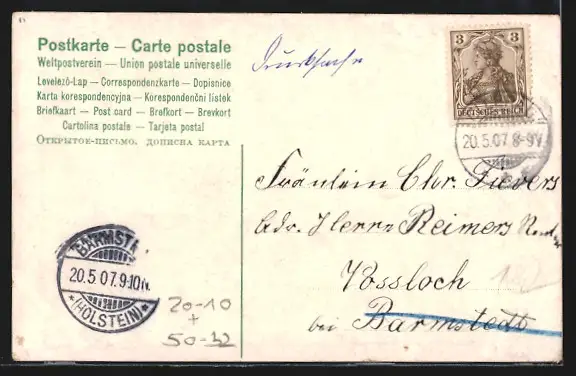 Postkarte — Carte postale
Weltpostverein — Union postale universelle
Levelező-Lap — Correspondenzkarte — Dopisnice
Karta korespondencyjna — Korespondenční listek
Briefkaart — Post card — Brefkort — Brevkort
Cartolina postale — Tarjeta postal
Открытое-письмо. дописна карта
Drucksache
3 3
DEUTSCHES REICH
20.5.07. 8-9V.
Fräulein Chr. Sievers
Adr. Herrn Reimers
Vossloch
bei Barmstedt
BARMSTE
20.5.07. 9-10N.
*(HOLSTEIN)*
20-10
+
50-32